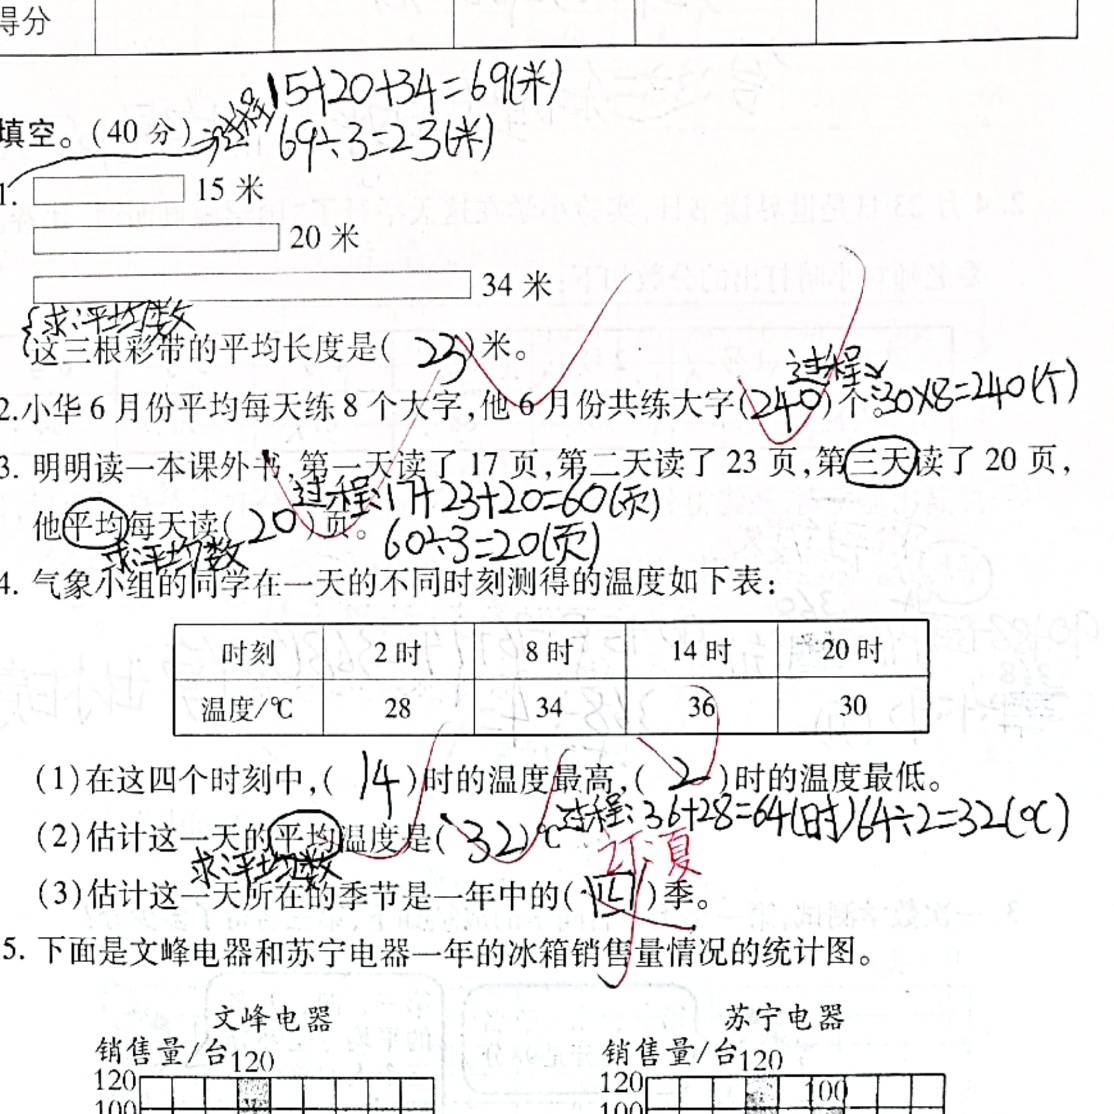 得分
15+20+34=69(米)
填空。(40分) 过程 69÷3=23(米)
1. 15米
20米
34米
求平均数
这三根彩带的平均长度是( 23 )米。
过程:
2.小华6月份平均每天练8个大字,他6月份共练大字(240)个。30×8=240(个)
3. 明明读一本课外书,第一天读了17页,第二天读了23页,第三天读了20页,
过程:17+23+20=60(页)
他平均每天读( 20 )页。 60÷3=20(页)
求平均数
4. 气象小组的同学在一天的不同时刻测得的温度如下表:
时刻 2时 8时 14时 20时
温度/℃ 28 34 36 30
(1)在这四个时刻中,( 14 )时的温度最高,( 2 )时的温度最低。
(2)估计这一天的平均温度是( 32 )℃ 过程:36+28=64(时)64÷2=32(℃)
求平均数 订:夏
(3)估计这一天所在的季节是一年中的( 四 )季。
5. 下面是文峰电器和苏宁电器一年的冰箱销售量情况的统计图。
文峰电器 苏宁电器
销售量/台 120 销售量/台 120
120 120 100
100 100